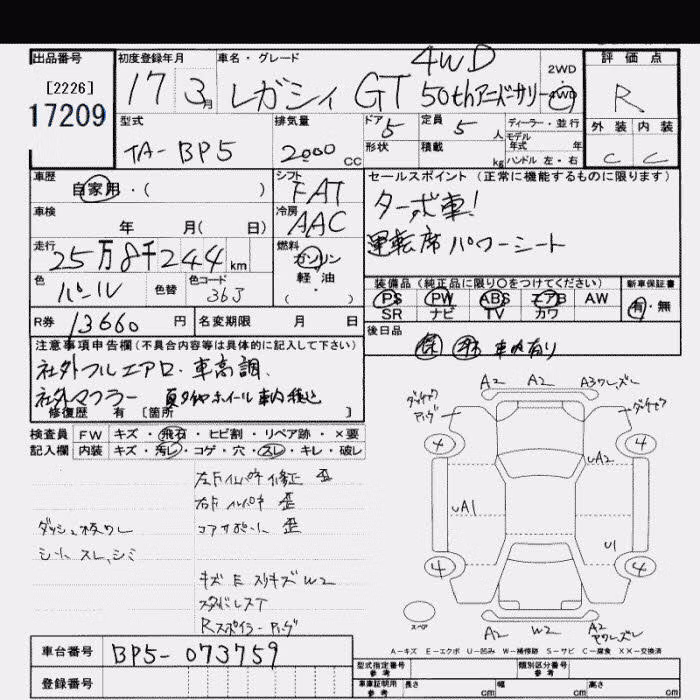 出品番号 初度登録年月 車名・グレード 4WD 2WD 評価点
[2226] 17 3月 レガシィ GT 50thアニバーサリー 4WD R
17209
型式 排気量 ドア 5 定員 5人 ディーラー・並行 外装 内装
TA-BP5 2000 CC 形状 積載 kg モデル年式 年 C C
ハンドル 左・右
車歴 自家用・( ) シフト FAT セールスポイント(正常に機能するものに限ります)
車検 年 月( 日) 冷房 AAC ターボ車!
走行 25万8千244km 燃料 ガソリン 軽油 ( ・ ) 運転席パワーシート
色 パール 色替 色コード 36J 装備品(純正品に限り○をつけてください) 新車保証書
PS PW ABS エアB AW 有・無
SR ナビ TV カワ
R券 13660円 名変期限 月 日 後日品
注意事項申告欄(不具合内容等は具体的に記入して下さい) 車内有り
社外フルエアロ、車高調、
社外マフラー 夏タイヤホイール車内積込
修復歴 有 [箇所 ]
検査員 FW キズ・飛石・ヒビ割・リペア跡・×要
記入欄 内装 キズ・汚レ・コゲ・穴・スレ・キレ・破レ
A2 A2 A3ワレ,ズレ
4 4
左F インパネ修正 歪
右F インパネ 歪
コアサポート 歪
シート スレ,シミ
UA2
UA1
U1
4 4
キズ E スリキズ W2
スタッドレス T
Rスポイラー
スペア
A2 W2 A2 ワレ,ズレ
A-キズ E-エクボ U-凹み W-補修跡 S-サビ C-腐食 X×-交換済
車台番号 BP5-073759
型式指定番号 参考 類別区分番号 参考
登録番号
車庫証明用 参考 長さ cm 幅 cm 高さ cm